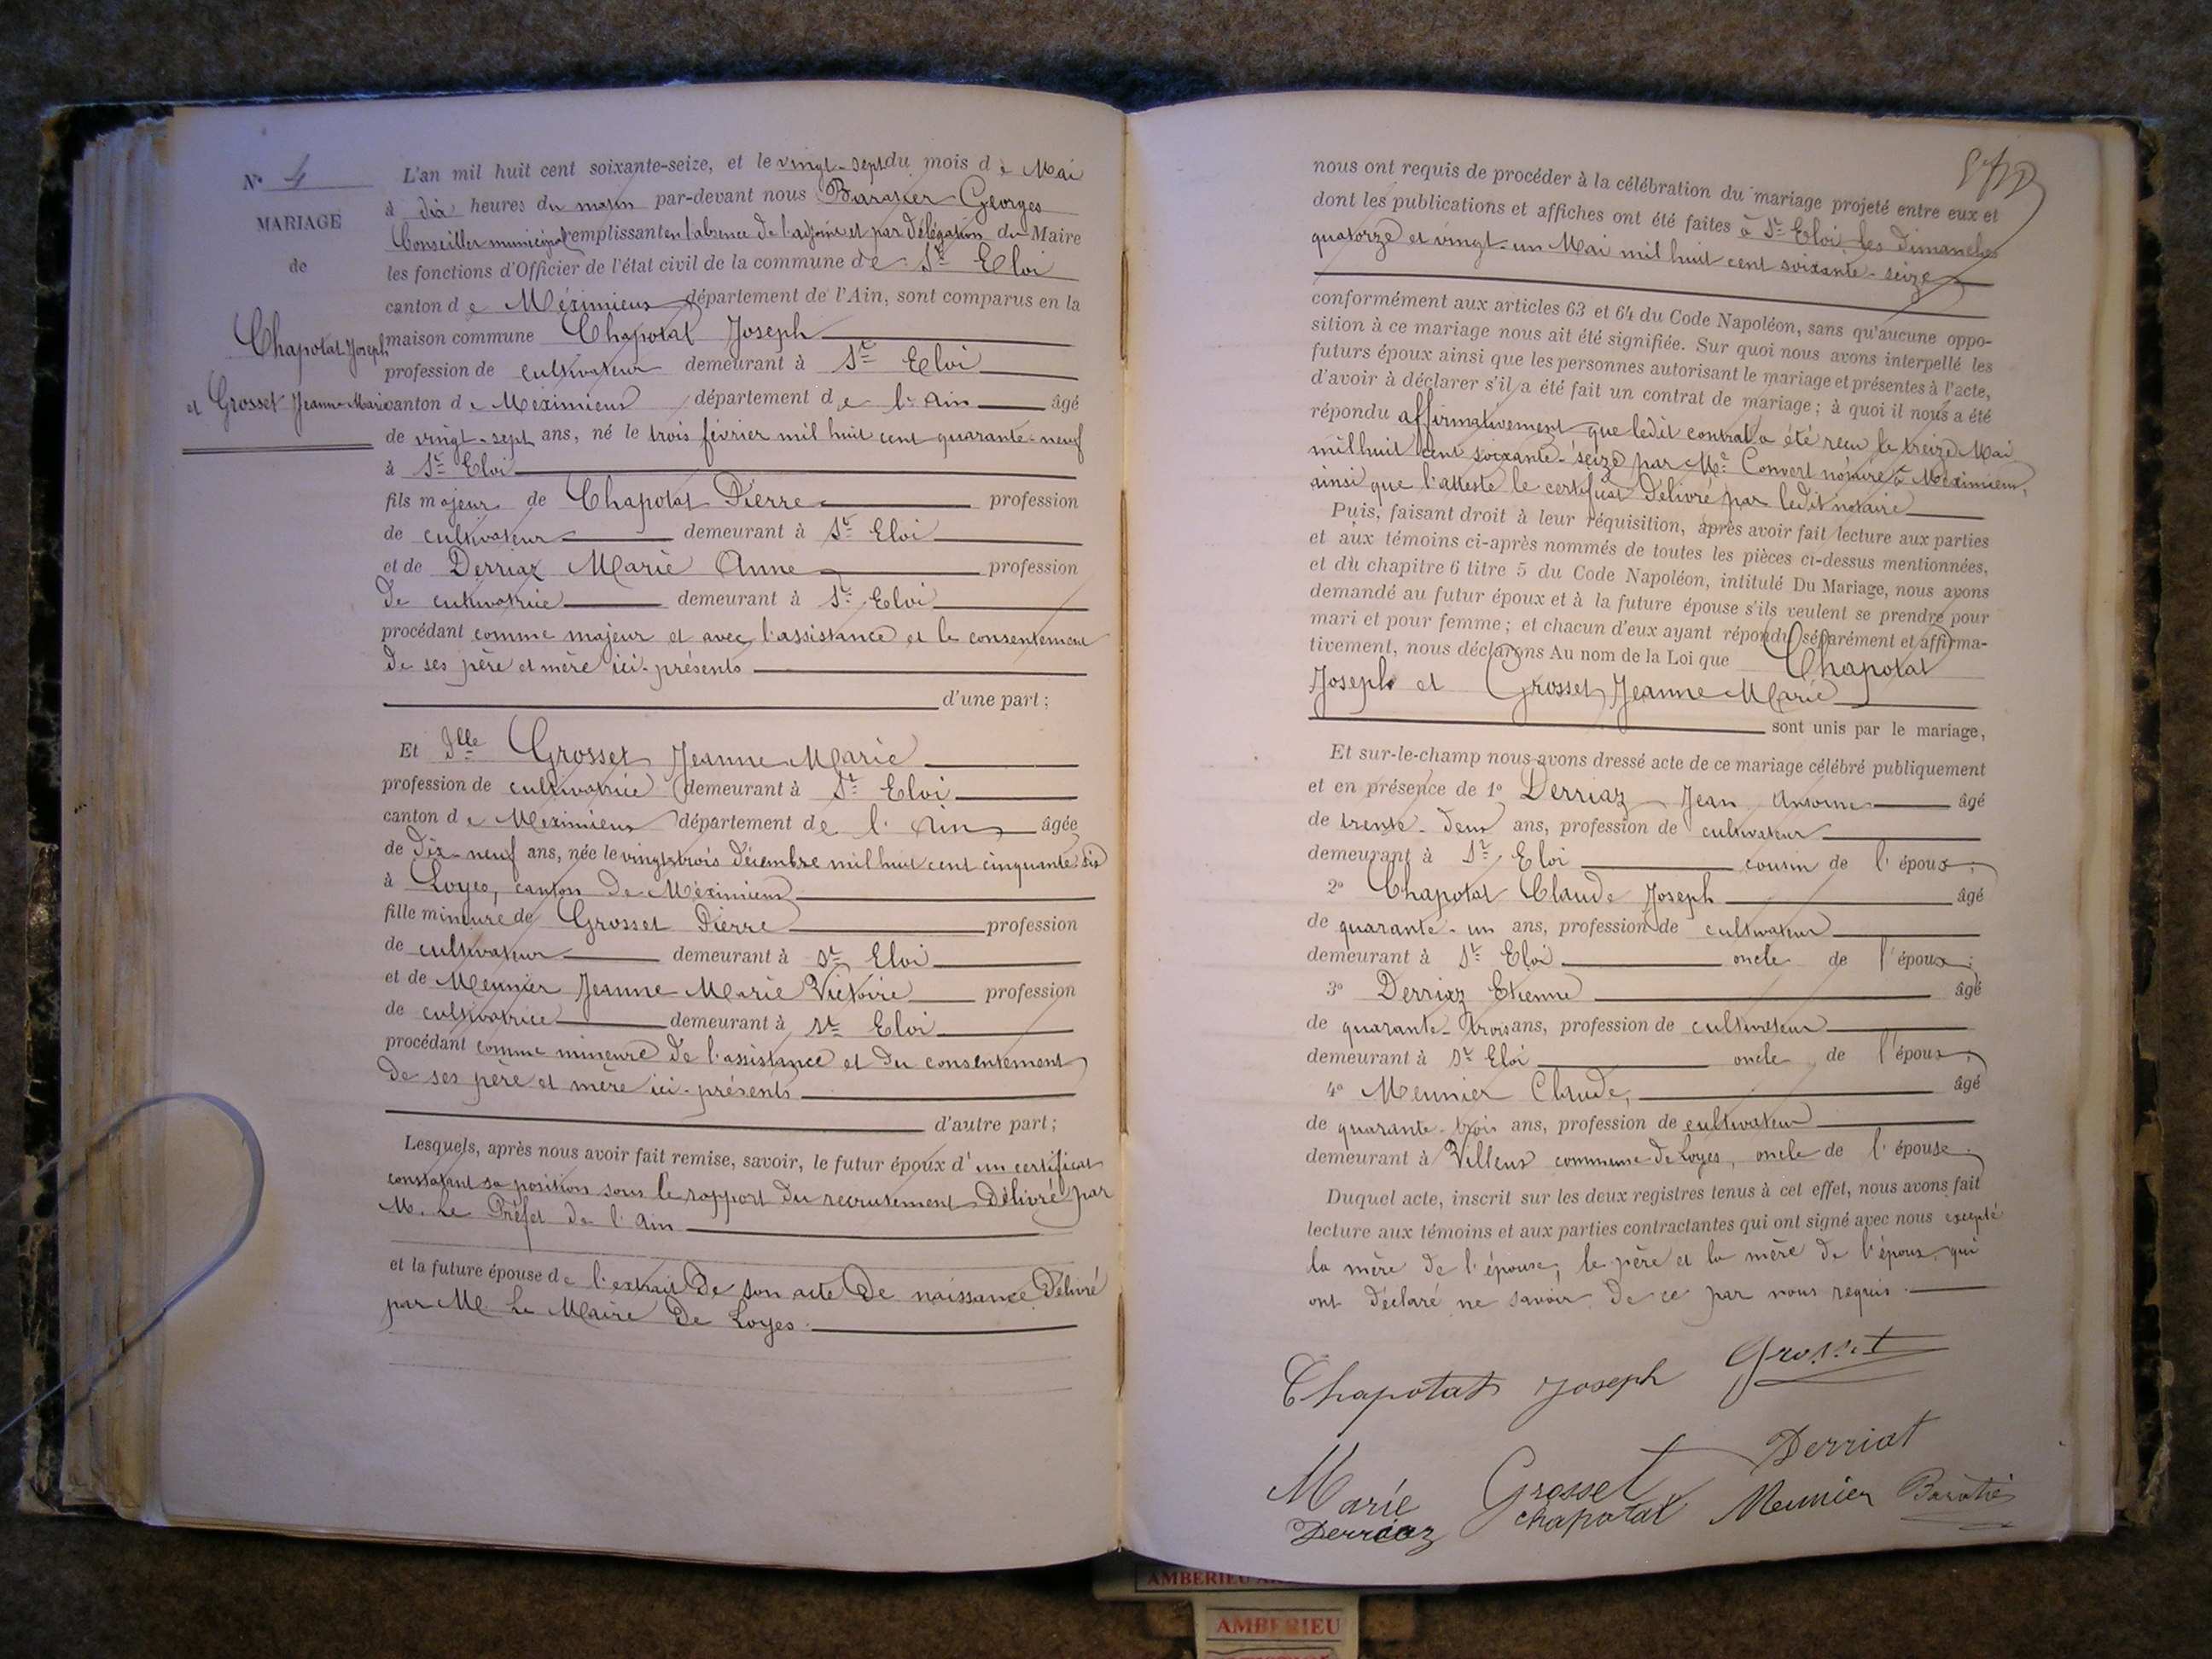 N° 4
MARIAGE
de
Chapotat Joseph
et Grosset Jeanne Marie
L'an mil huit cent soixante-seize, et le vingt-sept du mois de Mai
à dix heures du matin par-devant nous Georges
Conseiller municipal remplissant en l'absence de l'adjoint et par délégation du Maire
les fonctions d'Officier de l'état civil de la commune de St Eloi
canton de Méximieux département de l'Ain, sont comparus en la
maison commune Chapotat Joseph
profession de cultivateur demeurant à St Eloi
canton de Méximieux département de l'Ain âgé
de vingt-sept ans, né le trois février mil huit cent quarante-neuf
à St Eloi
fils majeur de Chapotat Pierre profession
de cultivateur demeurant à St Eloi
et de Derriaz Marie Anne profession
de cultivatrice demeurant à St Eloi
procédant comme majeur et avec l'assistance et le consentement
de ses père et mère ici-présents
d'une part ;
Et Dlle Grosset Jeanne Marie
profession de cultivatrice demeurant à St Eloi
canton de Méximieux département de l'Ain âgée
de dix-neuf ans, née le vingt-trois décembre mil huit cent cinquante six
à Loyes, canton de Méximieux
fille mineure de Grosset Pierre profession
de cultivateur demeurant à St Eloi
et de Meunier Jeanne Marie Victoire profession
de cultivatrice demeurant à St Eloi
procédant comme mineure de l'assistance et du consentement
de ses père et mère ici-présents
d'autre part ;
Lesquels, après nous avoir fait remise, savoir, le futur époux d'un certificat
constatant sa position sous le rapport du recrutement délivré par
M. le Préfet de l'Ain
et la future épouse de l'extrait de son acte de naissance délivré
par M. le Maire de Loyes.
nous ont requis de procéder à la célébration du mariage projeté entre eux et
dont les publications et affiches ont été faites à St Eloi les dimanches
quatorze et vingt-un Mai mil huit cent soixante-seize
conformément aux articles 63 et 64 du Code Napoléon, sans qu'aucune oppo-
sition à ce mariage nous ait été signifiée. Sur quoi nous avons interpellé les
futurs époux ainsi que les personnes autorisant le mariage et présentes à l'acte,
d'avoir à déclarer s'il a été fait un contrat de mariage ; à quoi il nous a été
répondu affirmativement que ledit contrat a été reçu le treize Mai
mil huit cent soixante-seize par Me Convert notaire à Méximieux,
ainsi que l'atteste le certificat délivré par ledit notaire
Puis, faisant droit à leur réquisition, après avoir fait lecture aux parties
et aux témoins ci-après nommés de toutes les pièces ci-dessus mentionnées,
et du chapitre 6 titre 5 du Code Napoléon, intitulé Du Mariage, nous avons
demandé au futur époux et à la future épouse s'ils veulent se prendre pour
mari et pour femme ; et chacun d'eux ayant répondu séparément et affirma-
tivement, nous déclarons Au nom de la Loi que Chapotat
Joseph et Grosset Jeanne Marie
sont unis par le mariage,
Et sur-le-champ nous avons dressé acte de ce mariage célébré publiquement
et en présence de 1° Derriaz Jean Antoine âgé
de trente-deux ans, profession de cultivateur
demeurant à St Eloi cousin de l'époux ;
2° Chapotat Claude Joseph âgé
de quarante-un ans, profession de cultivateur
demeurant à St Eloi oncle de l'époux ;
3° Derriaz Etienne âgé
de quarante-trois ans, profession de cultivateur
demeurant à St Eloi oncle de l'époux ;
4° Meunier Claude, âgé
de quarante-trois ans, profession de cultivateur
demeurant à Villeux commune de Loyes, oncle de l'épouse.
Duquel acte, inscrit sur les deux registres tenus à cet effet, nous avons fait
lecture aux témoins et aux parties contractantes qui ont signé avec nous excepté
la mère de l'épouse, le père et la mère de l'époux qui
ont déclaré ne savoir de ce par nous requis.
Chapotat Joseph Grosset
Marie Grosset Derriat
Derriaz chapotat Meunier
AMBERIEU
AMBERIEU